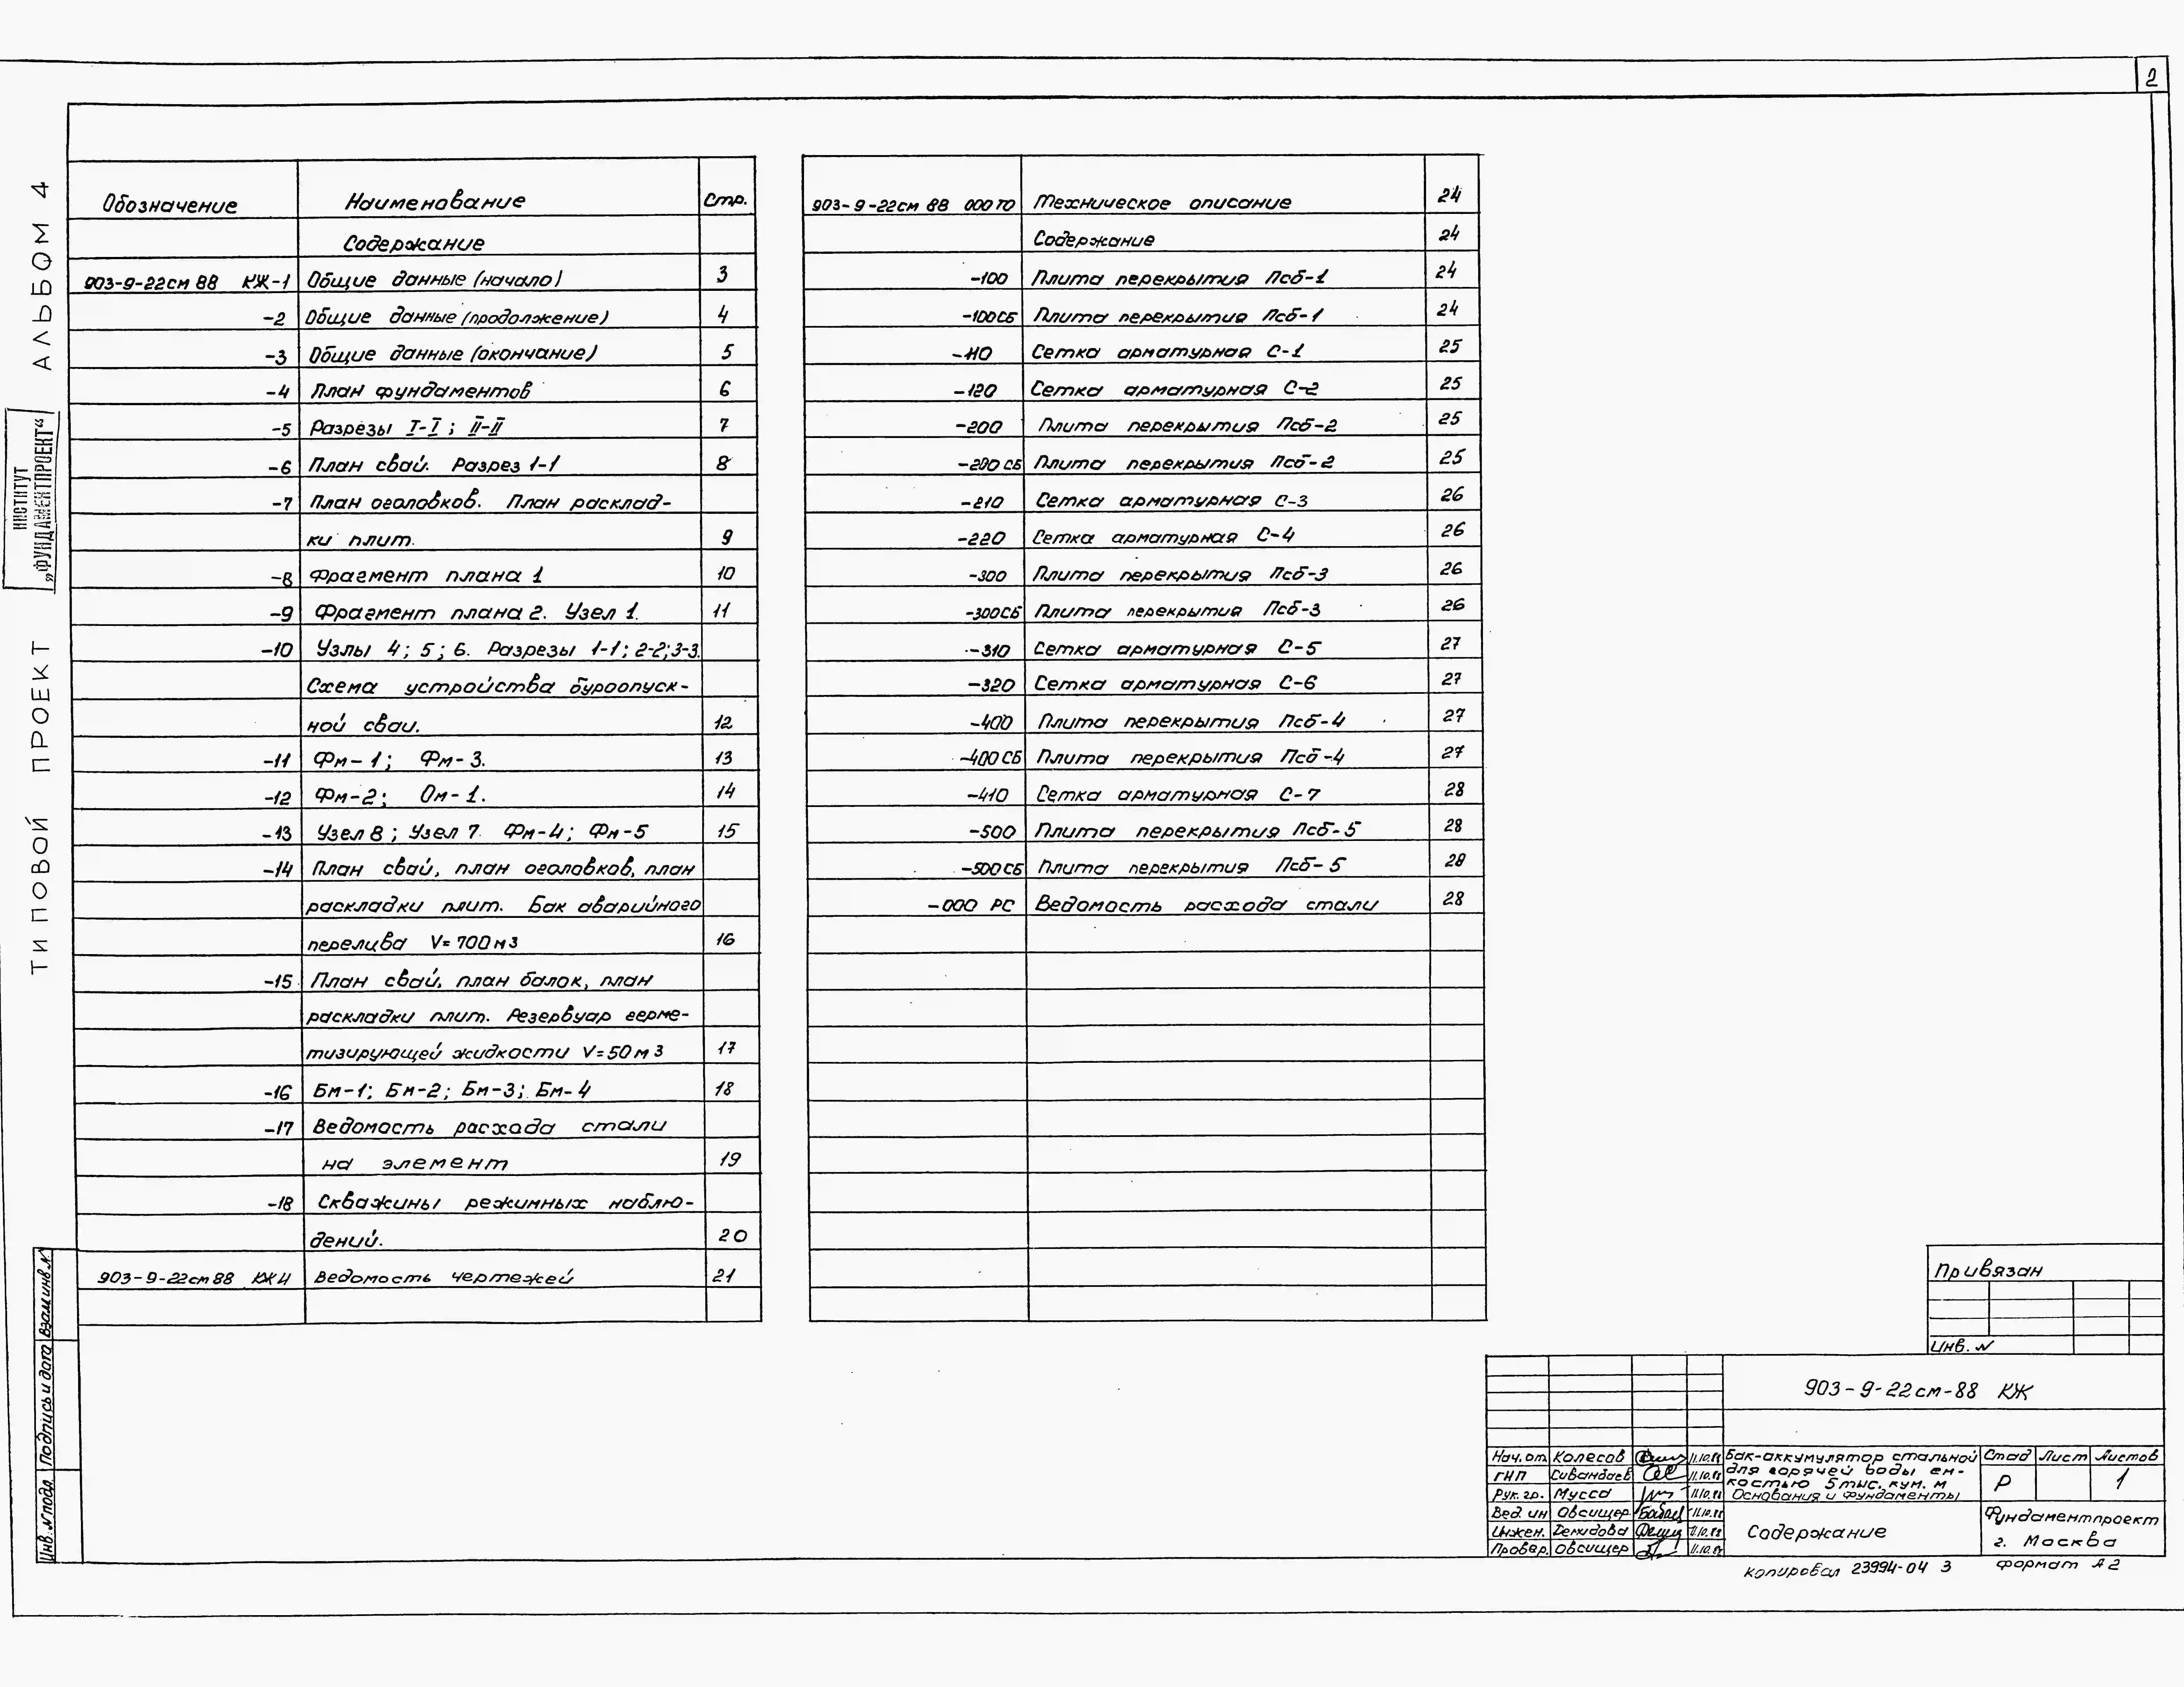 2
ТИПОВОЙ ПРОЕКТ АЛЬБОМ 4
ИНСТИТУТ
„ФУНДАМЕНТПРОЕКТ“
Обозначение Наименование Стр.
Содержание
903-9-22см 88 КЖ-1 Общие данные (начало) 3
-2 Общие данные (продолжение) 4
-3 Общие данные (окончание) 5
-4 План фундаментов 6
-5 Разрезы I-I ; II-II 7
-6 План свай. Разрез 1-1 8
-7 План оголовков. План расклад-
ки плит. 9
-8 Фрагмент плана 1 10
-9 Фрагмент плана 2. Узел 1. 11
-10 Узлы 4; 5; 6. Разрезы 1-1; 2-2; 3-3.
Схема устройства буроопуск-
ной сваи. 12
-11 Фм-1; Фм-3. 13
-12 Фм-2; Ом-1. 14
-13 Узел 8; Узел 7 Фм-4; Фм-5 15
-14 План свай, план оголовков, план
раскладки плит. Бак аварийного
перелива V=700м3 16
-15 План свай, план балок, план
раскладки плит. Резервуар герме-
тизирующей жидкости V=50м3 17
-16 Бм-1; Бм-2; Бм-3; Бм-4 18
-17 Ведомость расхода стали
на элемент 19
-18 Скважины режимных наблю-
дений. 20
903-9-22см88 КЖИ Ведомость чертежей 21
903-9-22см 88 000 ТО Техническое описание 24
Содержание 24
-100 Плита перекрытия Псб-1 24
-100СБ Плита перекрытия Псб-1 24
-110 Сетка арматурная С-1 25
-120 Сетка арматурная С-2 25
-200 Плита перекрытия Псб-2 25
-200 СБ Плита перекрытия Псб-2 25
-210 Сетка арматурная С-3 26
-220 Сетка арматурная С-4 26
-300 Плита перекрытия Псб-3 26
-300СБ Плита перекрытия Псб-3 26
-310 Сетка арматурная С-5 27
-320 Сетка арматурная С-6 27
-400 Плита перекрытия Псб-4 27
-400СБ Плита перекрытия Псб-4 27
-410 Сетка арматурная С-7 28
-500 Плита перекрытия Псб-5 28
-500СБ Плита перекрытия Псб-5 28
-000 РС Ведомость расхода стали 28
Взам.инв.№
Подпись и дата
Инв.№подл.
Привязан
Инв. №
903-9-22см-88 КЖ
Нач.от. Колесов 11.10.88
ГИП 11.10.88
Рук.гр. Мусса 11.10.88
Вед. ин Овсищер 11.10.88
Инжен. Демидова 11.10.88
Провер. Овсищер 11.10.88
Бак-аккумулятор стальной
для горячей воды ем-
костью 5тыс.куб.м
Основания и фундаменты
Содержание
Стад Лист Листов
Р 1
Фундаментпроект
г. Москва
Копировал 23994-04 3 Формат А2